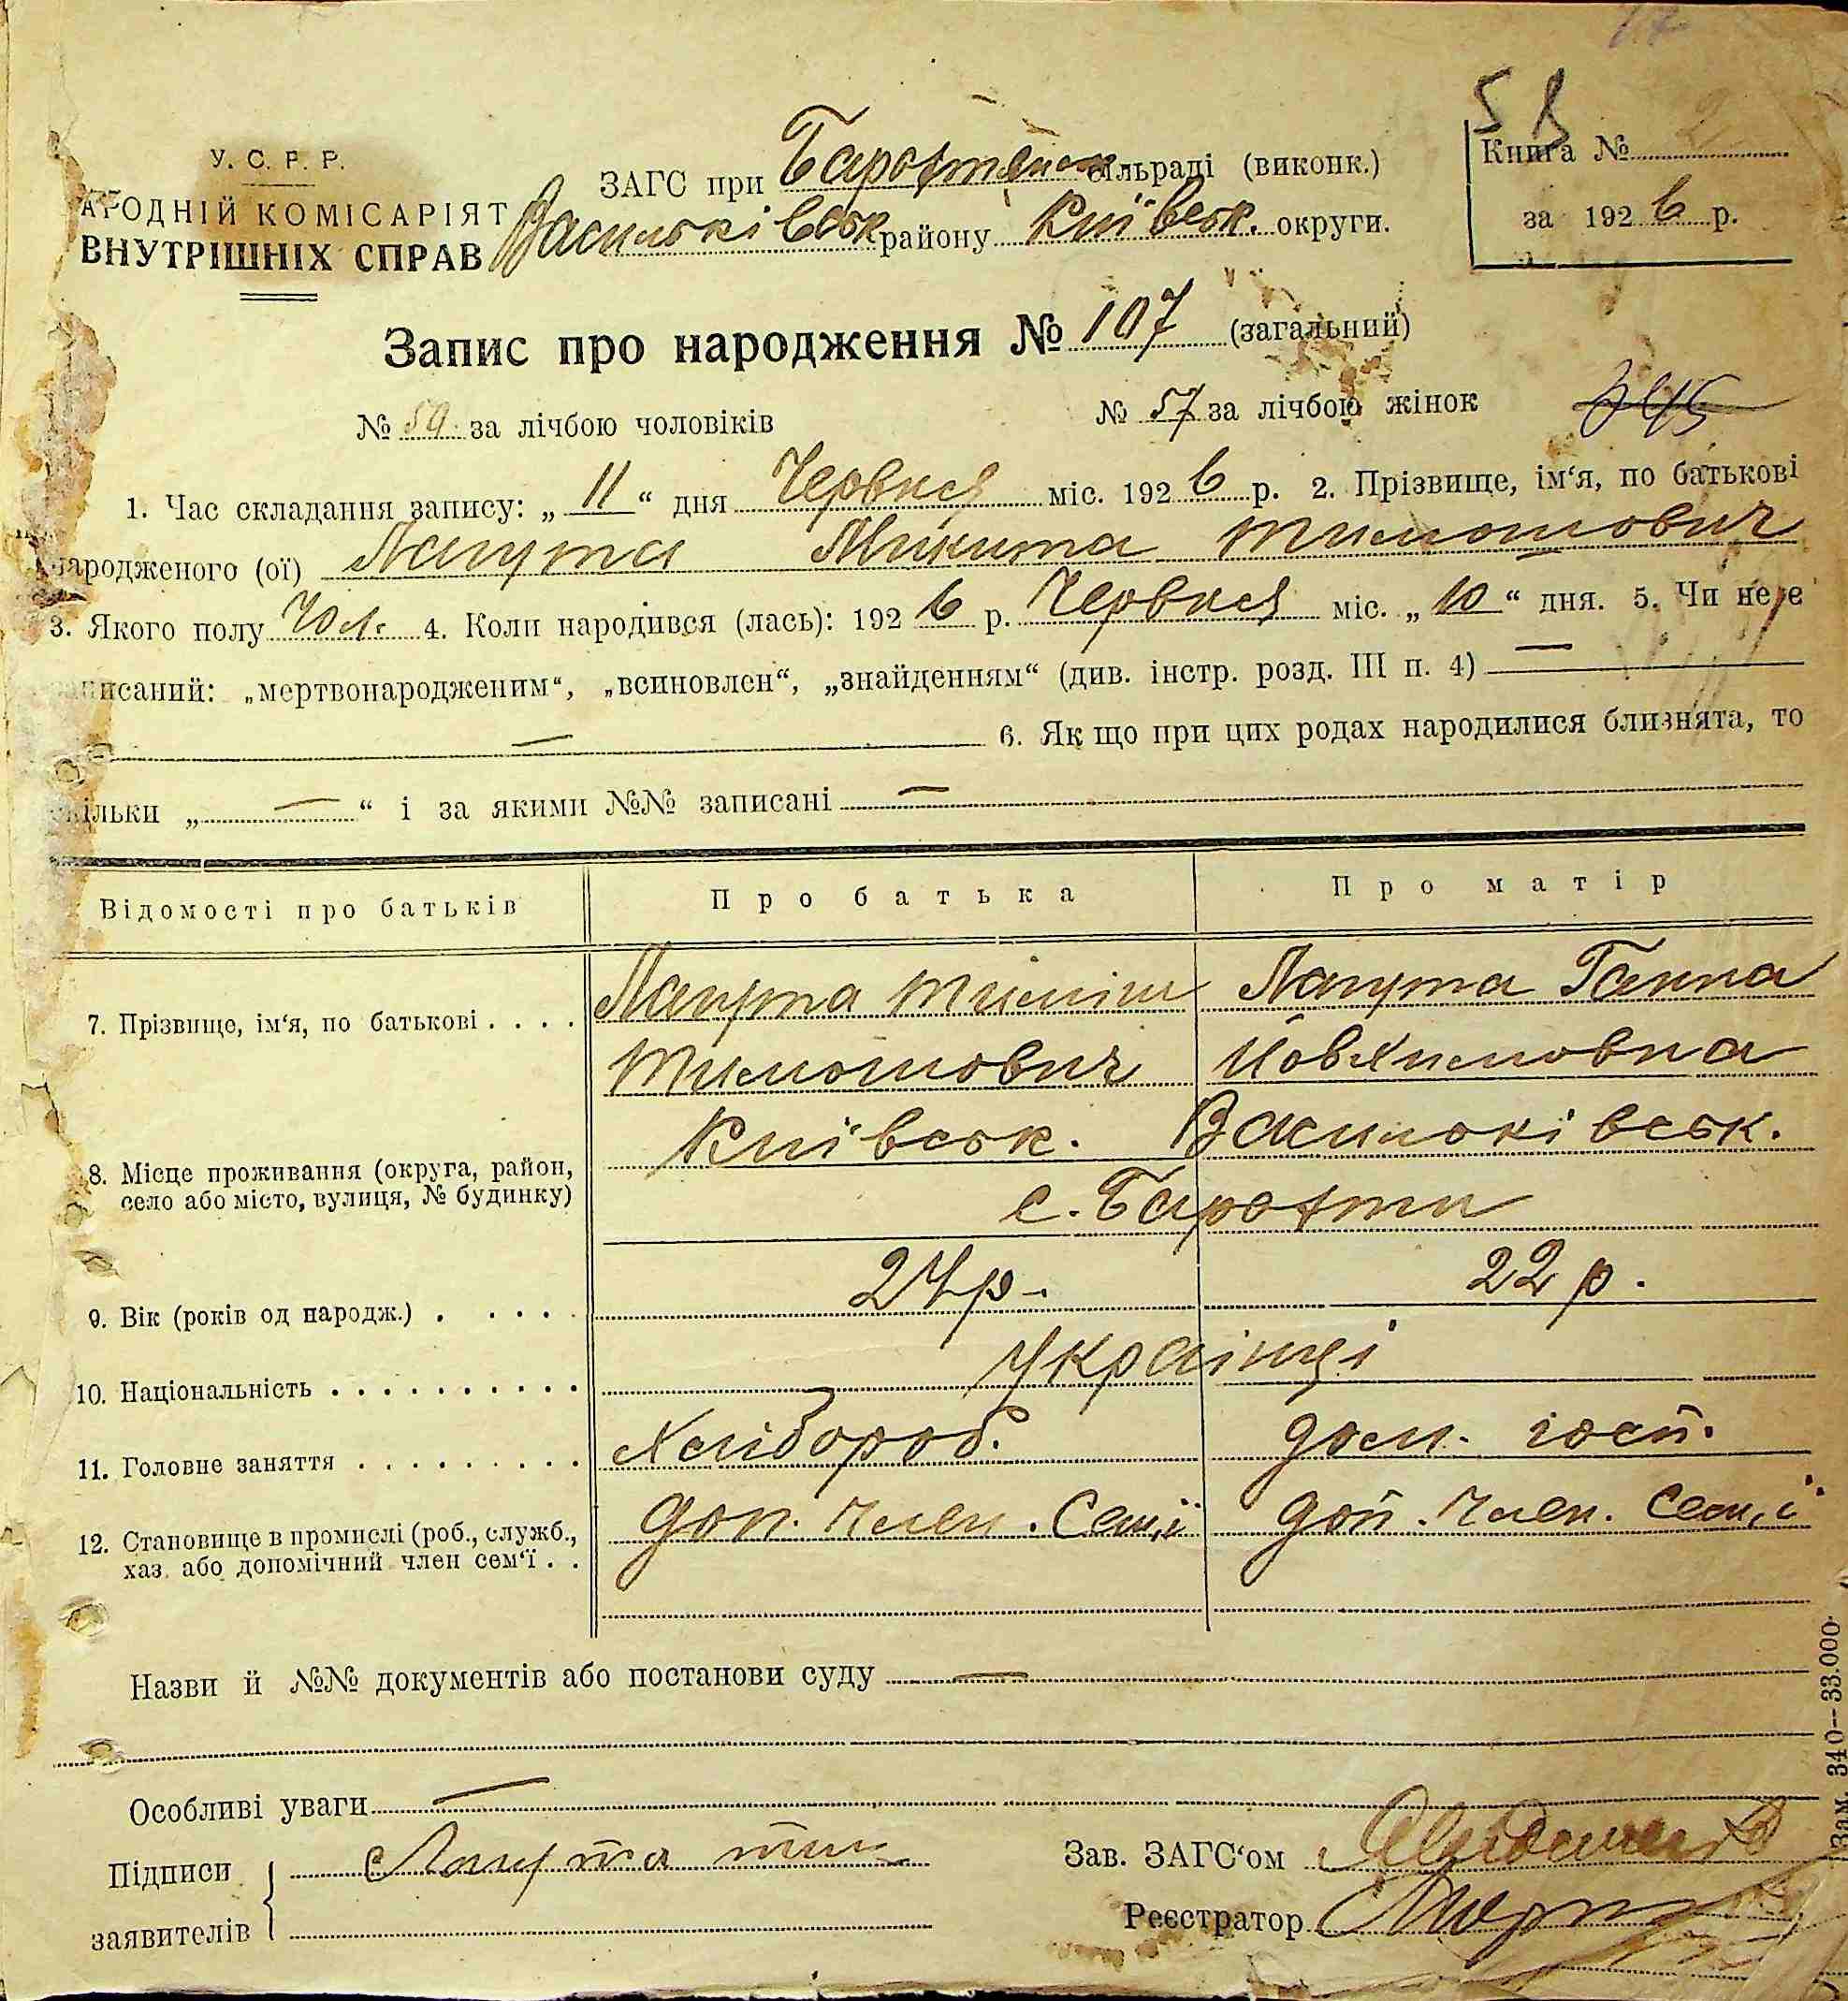 У. С. Р. Р.
АРОДНІЙ КОМІСАРІЯТ
ВНУТРІШНІХ СПРАВ
ЗАГС при Барахтянськ сільраді (виконк.)
Васильківськ району Київськ. округи.
58
Книга № 2
за 1926 р.
Запис про народження № 107 (загальний)
№ 50 за лічбою чоловіків № 57 за лічбою жінок
1. Час складання запису: „ 11 “ дня Червня міс. 1926 р. 2. Прізвище, ім‘я, по батькові
народженого (ої) Лапута Микита Тимошович
3. Якого полу Чол. 4. Коли народився (лась): 1926 р. Червня міс. „ 10 “ дня. 5. Чи не є
писаний: „мертвонародженим“, „всиновлен“, „знайденням“ (див. інстр. розд. III п. 4) —
— 6. Як що при цих родах народилися близнята, то
ільки „ — “ і за якими №№ записані —
Відомості про батьків Про батька Про матір
7. Прізвище, ім‘я, по батькові . . . . Лапута Тиміш Лапута Ганна
Тимошович Йовхимовна
8. Місце проживання (округа, район, село або місто, вулиця, № будинку) Київськ. Васильківськ.
с. Барахти
9. Вік (років од народж.) . . . . 24 р. 22 р.
10. Національність . . . . . . . . . . Українці
11. Головне заняття . . . . . . . . . Хлібороб. дом. госп.
12. Становище в промислі (роб., служб., хаз. або допомічний член сем‘ї . . доп. член. Сем,ї доп. член. Сем,ї
Назви й №№ документів або постанови суду —
Особливі уваги —
Підписи заявителів { Лапута тим
Зав. ЗАГС‘ом
Реєстратор
Зам. 340—33.000